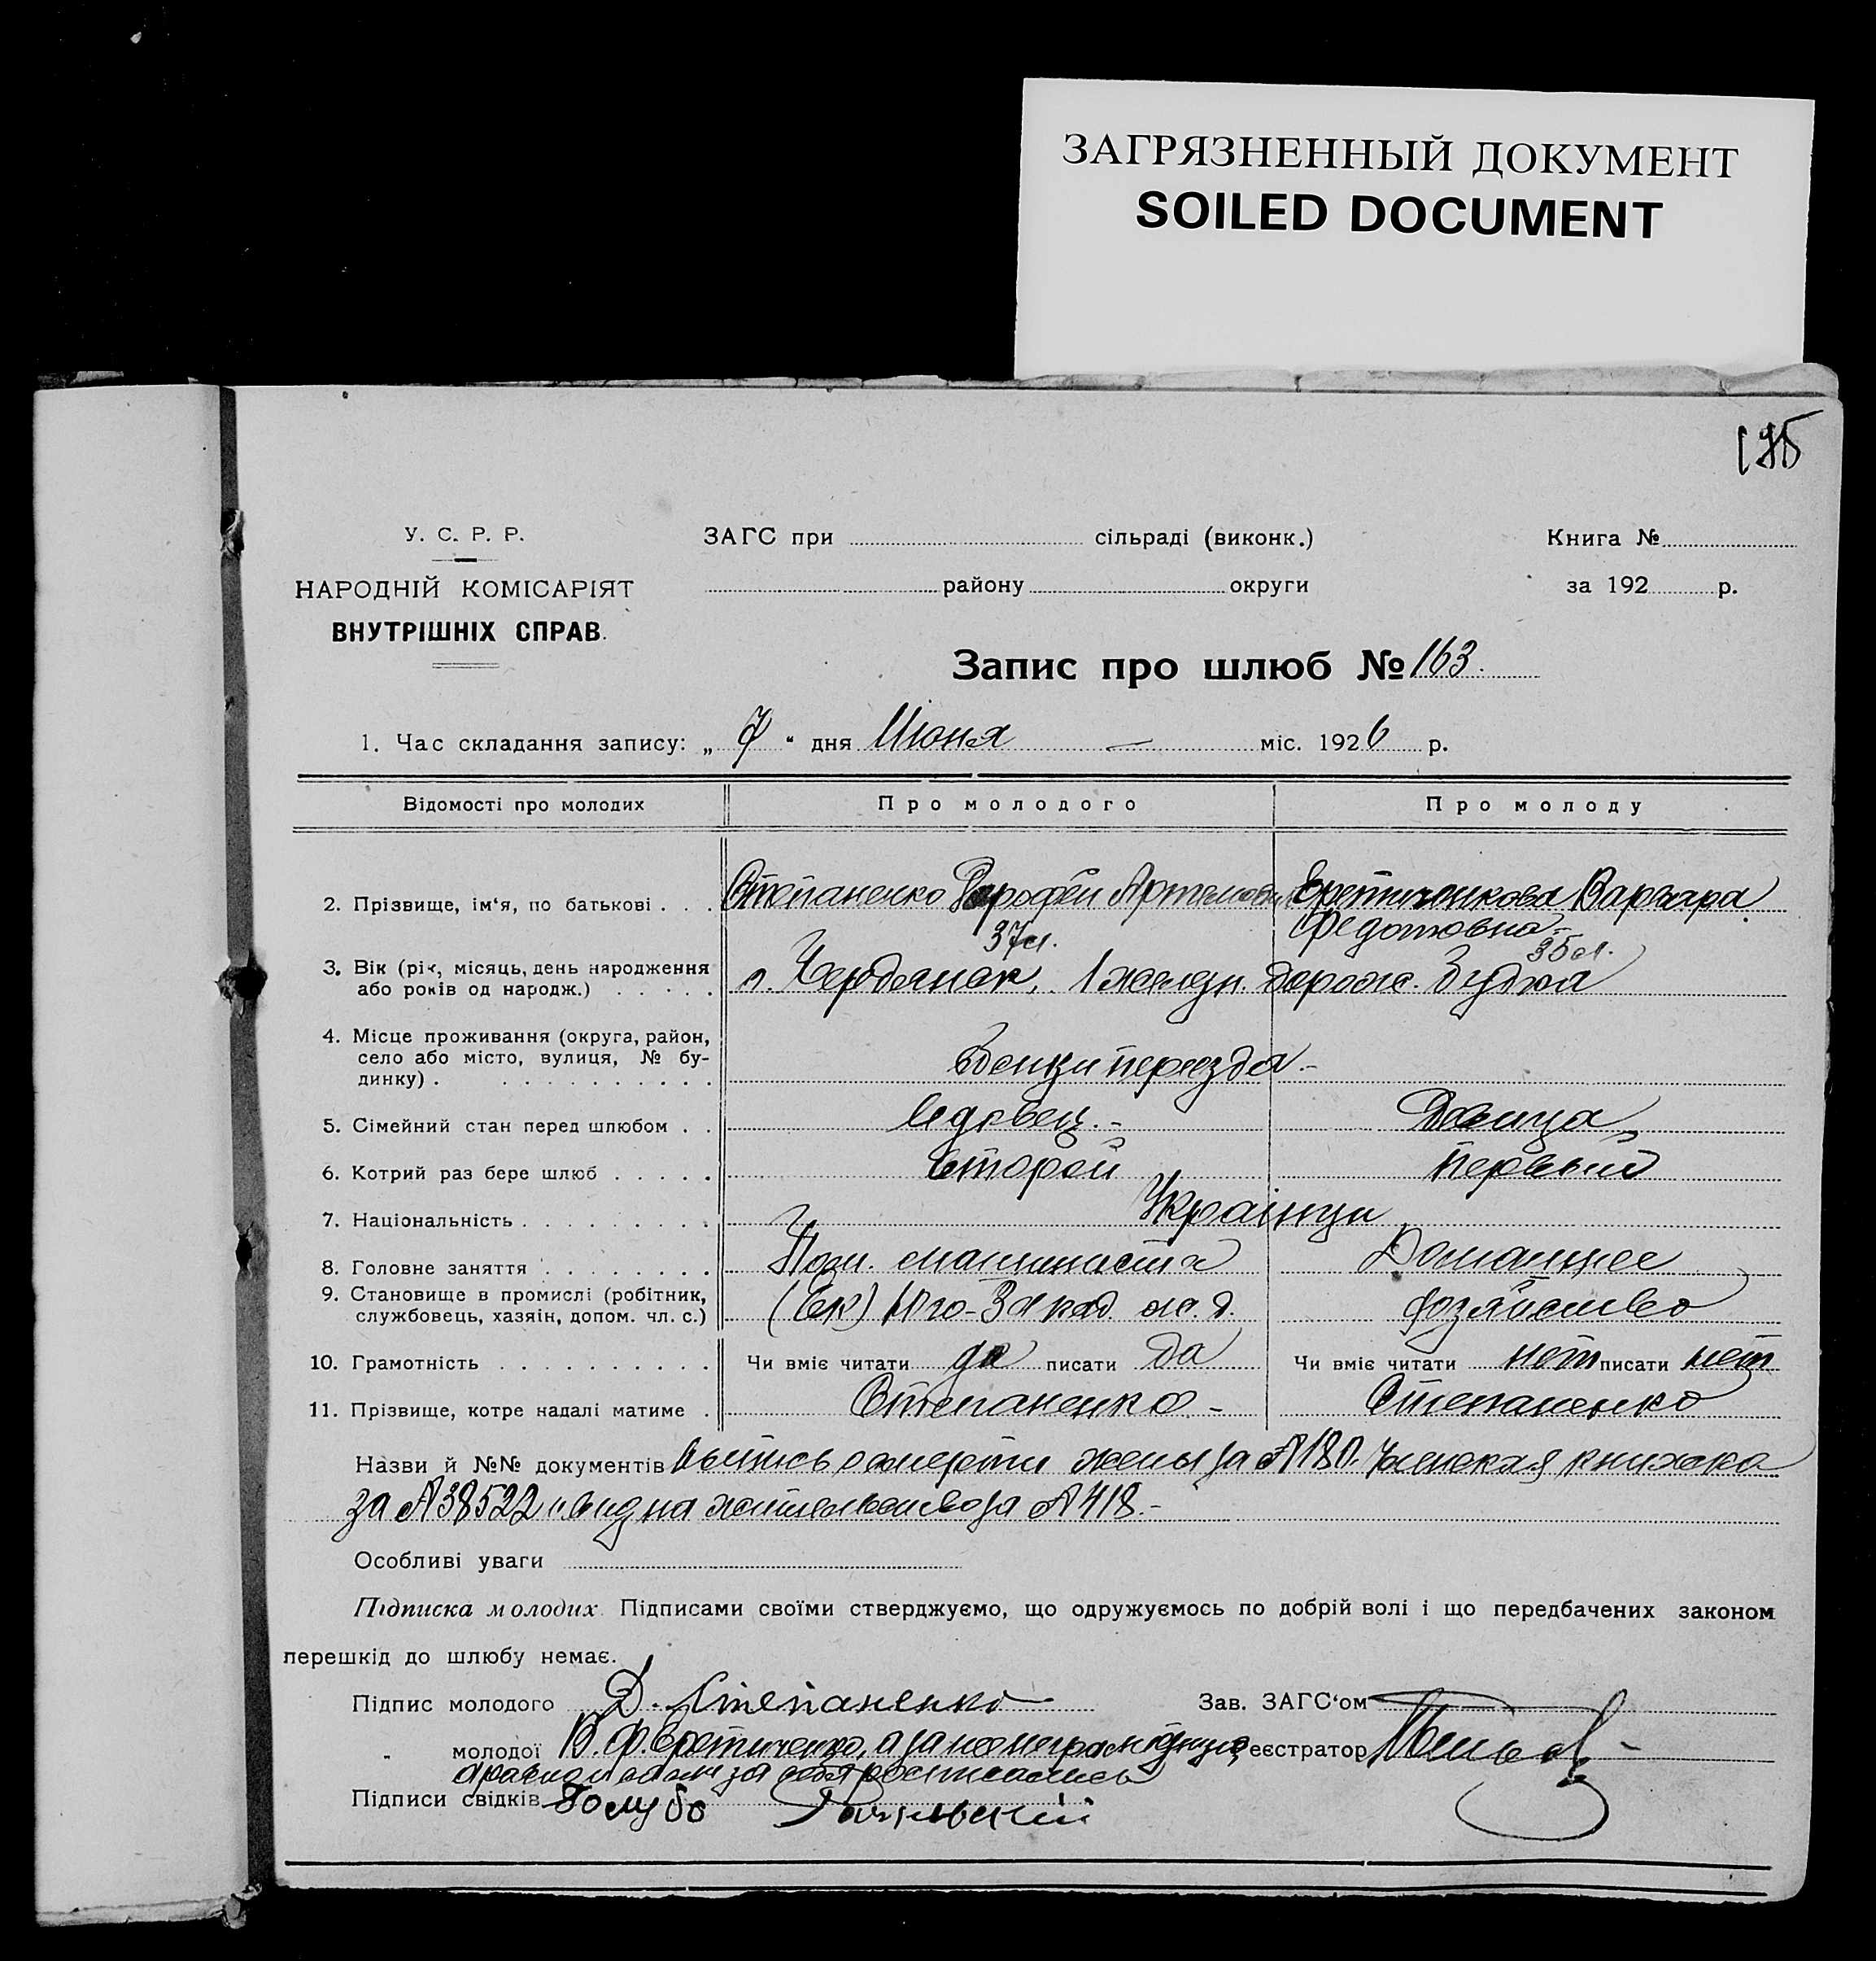 ЗАГРЯЗНЕННЫЙ ДОКУМЕНТ
SOILED DOCUMENT
195
У. С. Р. Р.
НАРОДНІЙ КОМІСАРІЯТ
ВНУТРІШНІХ СПРАВ.
ЗАГС при сільраді (виконк.)
району округи
Книга №
за 192 р.
Запис про шлюб № 163.
1. Час складання запису: „ 7 “ дня Июня — міс. 1926 р.
Відомості про молодих Про молодого Про молоду
2. Прізвище, ім‘я, по батькові . . . Степаненко Артемович Еретиченкова Варвара
Федотовна
37 л. 35 л.
3. Вік (рік, місяць, день народження
або років од народж.) . . . . .
г. Бердянск, 1 железн. дорож. будка
4. Місце проживання (округа, район,
село або місто, вулиця, № бу-
динку) . . . . . . . . . . .
переезда -
5. Сімейний стан перед шлюбом . . Вдовец. - Девица
6. Котрий раз бере шлюб . . . . . Второй Первый
7. Національність . . . . . . . . . Українци
8. Головне заняття . . . . . . . . Пом. машиниста Домашнее
9. Становище в промислі (робітник,
службовець, хазяін, допом. чл. с.)
(Ек) Юго-Запад. ж. д. хозяйство
10. Грамотність . . . . . . . . . . Чи вміє читати да писати да Чи вміє читати нет писати нет
11. Прізвище, котре надалі матиме . Степаненко - Степаненко
Назви й №№ документів Выпись о смерти жены за №180. Членская книжка
за №38522 и вид на жительство за №418.-
Особливі уваги
Підписка молодих. Підписами своїми стверджуємо, що одружуємось по добрій волі і що передбачених законом
перешкід до шлюбу немає.
Підпис молодого Д. Степаненко
Зав. ЗАГС‘ом
„ молодої В. Ф. Еретиченко, а за нее неграмотную
Реєстратор
за себя росписались
Підписи свідків Голубо